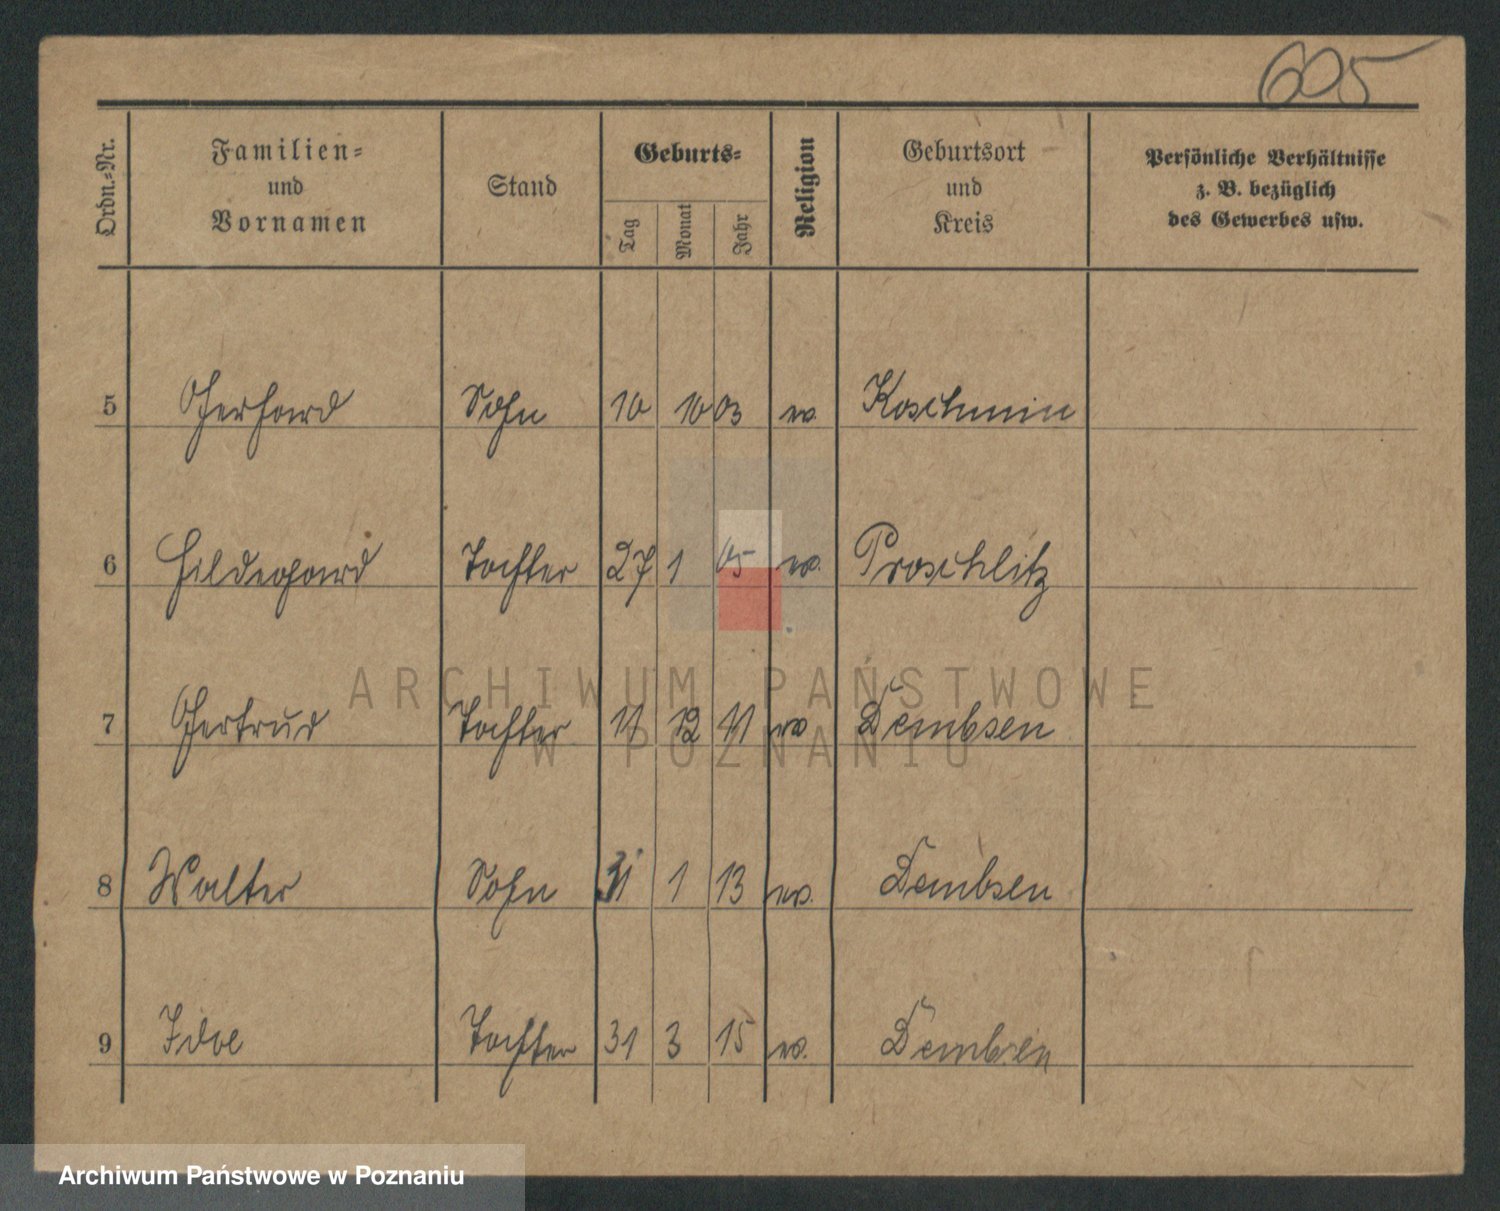 605
Ordn.-Nr.
Familien-
und
Vornamen
Stand
Geburts-
Tag
Monat
Jahr
Religion
Geburtsort
und
Kreis
Persönliche Verhältnisse
z. B. bezüglich
des Gewerbes usw.
5 Gerhard Sohn 10 10 03 ev. Koschmin
6 Hildegard Tochter 27 1 05 ev. Proschlitz
ARCHIWUM PAŃSTWOWE
7 Gertrud Tochter 11 12 11 ev. Dembsen
W POZNANIU
8 Walter Sohn 31 1 13 ev. Dembsen
9 Tochter 31 3 15 ev. Dembsen
Archiwum Państwowe w Poznaniu